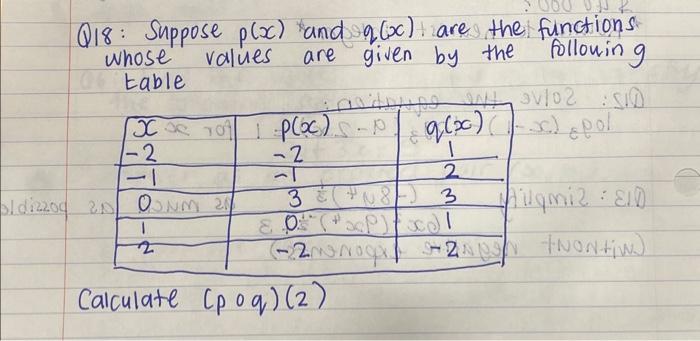 Q18: Suppose p(x) and q(x) are the functions
whose values are given by the following
table
x p(x) q(x)
-2 -2 1
-1 -1 2
0 3 3
1 0 1
2 -2 -2
Calculate (p o q)(2)